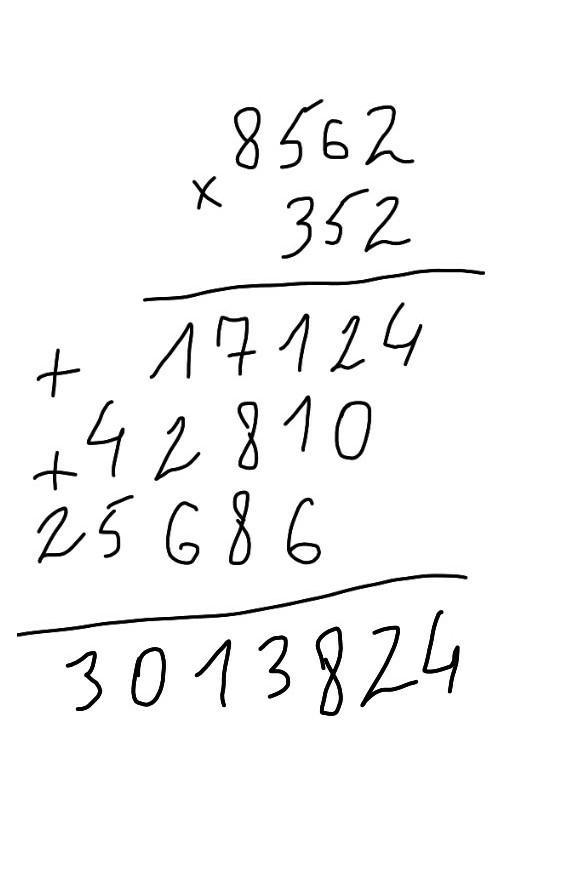 8562
× 352
+ 17124
+ 42810
25686
3013824